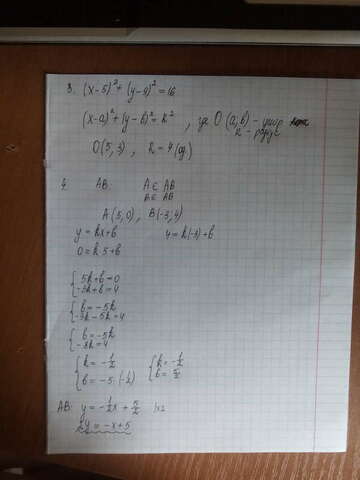 3. (x-5)²+(y-9)²=16
(x-a)²+(y-b)²=R², где O(a,b) - центр
R - радиус
O(5,3), R=4(ед.)
4. AB. A∈AB
B∈AB
A(5,0), B(-3,4)
y=kx+b 4=k(-3)+b
0=k·5+b
5k+b=0
-3k+b=4
b=-5k
-3k-5k=4
b=-5k
-8k=4
k=-1/2 k=-1/2
b=-5·(-1/2) b=5/2
AB: y=-1/2x+5/2 |x2
2y=-x+5